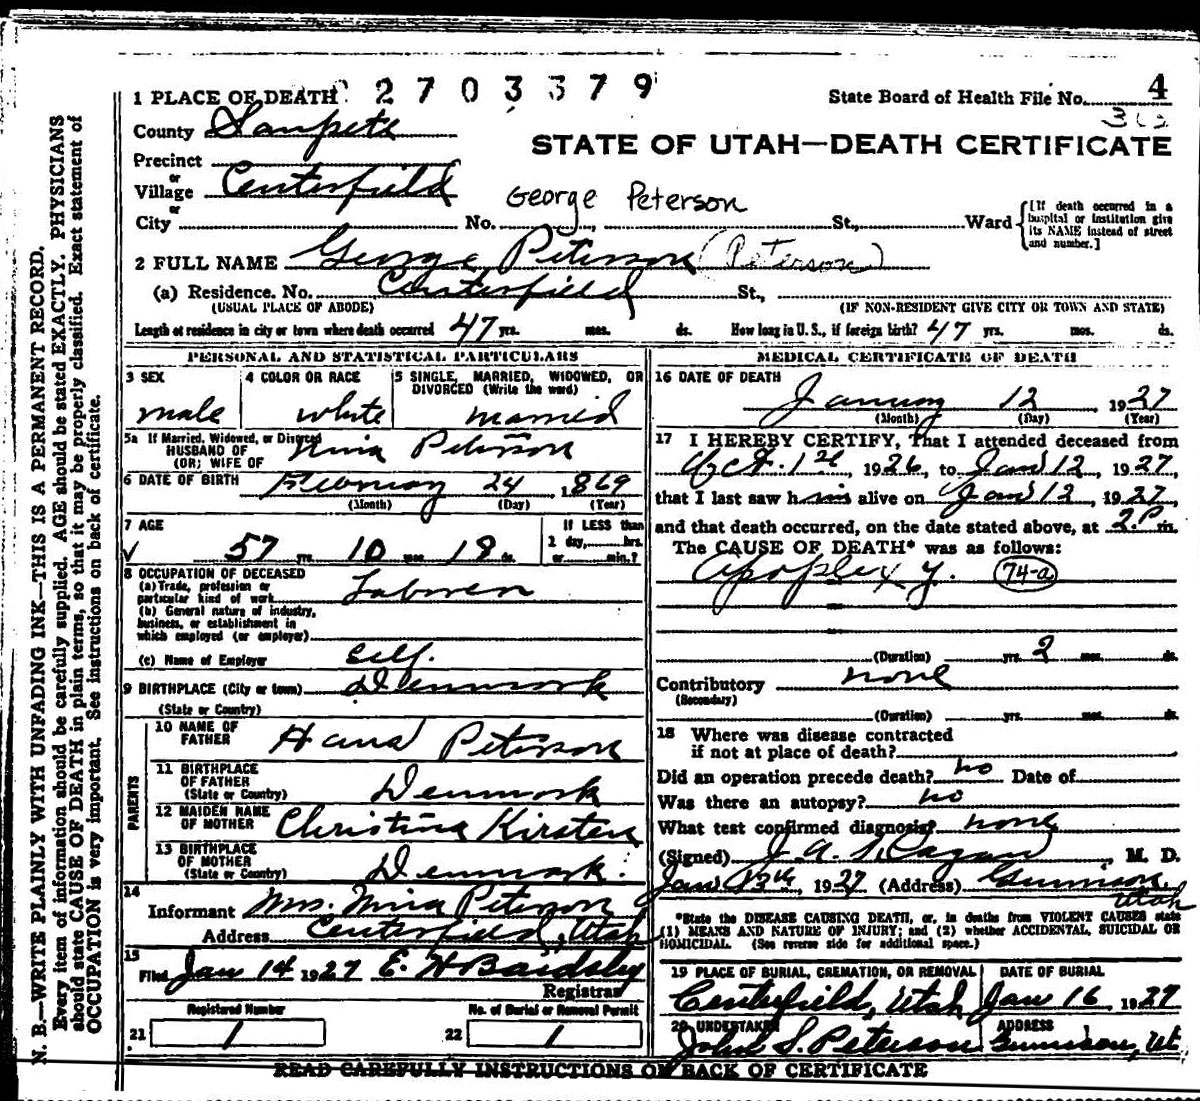 N. B.—WRITE PLAINLY WITH UNFADING INK—THIS IS A PERMANENT RECORD.
Every item of information should be carefully supplied. AGE should be stated EXACTLY. PHYSICIANS
should state CAUSE OF DEATH in plain terms, so that it may be properly classified. Exact statement of
OCCUPATION is very important. See instructions on back of certificate.
1 PLACE OF DEATH 2 7 0 3 3 7 9
State Board of Health File No. 4
County Sanpete
STATE OF UTAH—DEATH CERTIFICATE
Precinct
or
Village Centerfield
or
George Peterson
City No. St., Ward
[If death occurred in a
hospital or institution give
its NAME instead of street
and number.]
2 FULL NAME George Peterson (Peterson)
(a) Residence. No. Centerfield St.,
(USUAL PLACE OF ABODE) (IF NON-RESIDENT GIVE CITY OR TOWN AND STATE)
Length of residence in city or town where death occurred 47 yrs. mos. ds. How long in U. S., if foreign birth? 47 yrs. mos. ds.
PERSONAL AND STATISTICAL PARTICULARS
3 SEX male
4 COLOR OR RACE white
5 SINGLE, MARRIED, WIDOWED, OR
DIVORCED (Write the word)
married
5a If Married, Widowed, or Divorced
HUSBAND OF
(OR) WIFE OF
Mina Peterson
6 DATE OF BIRTH February 24, 1869
(Month) (Day) (Year)
7 AGE
57 yrs. 10 mos. 18 ds.
If LESS than
1 day, hrs.
or min.?
8 OCCUPATION OF DECEASED
(a) Trade, profession or
particular kind of work
(b) General nature of industry,
business, or establishment in
which employed (or employer)
(c) Name of Employer Self.
9 BIRTHPLACE (City or town) Denmark
(State or Country)
PARENTS
10 NAME OF
FATHER Hans Peterson
11 BIRTHPLACE
OF FATHER
(State or Country) Denmark
12 MAIDEN NAME
OF MOTHER Christina Kirsten
13 BIRTHPLACE
OF MOTHER
(State or Country) Denmark.
14
Informant Mrs. Mina Peterson
Address Centerfield, Utah
15
Filed Jan 14 1927
Registrar
Registered Number
21 1
No. of Burial or Removal Permit
22 1
MEDICAL CERTIFICATE OF DEATH
16 DATE OF DEATH
January 12, 1927
(Month) (Day) (Year)
17 I HEREBY CERTIFY, That I attended deceased from
Oct. 1st, 1926, to Jan 12, 1927,
that I last saw him alive on Jan 12, 1927,
and that death occurred, on the date stated above, at 2 P. m.
The CAUSE OF DEATH* was as follows:
Apoplexy. 74-a
(Duration) yrs. 2 mos. ds.
Contributory none
(Secondary)
(Duration) yrs. mos. ds.
18 Where was disease contracted
if not at place of death?
Did an operation precede death? no Date of
Was there an autopsy? no
What test confirmed diagnosis? none
(Signed) J. A. Hagan, M. D.
Jan 13th, 1927 (Address) Gunnison,
Utah
*State the DISEASE CAUSING DEATH, or, in deaths from VIOLENT CAUSES state
(1) MEANS AND NATURE OF INJURY; and (2) whether ACCIDENTAL, SUICIDAL OR
HOMICIDAL. (See reverse side for additional space.)
19 PLACE OF BURIAL, CREMATION, OR REMOVAL
Centerfield, Utah
DATE OF BURIAL
Jan 16, 1927
20 UNDERTAKER
John S. Peterson
ADDRESS
Gunnison, Ut
READ CAREFULLY INSTRUCTIONS ON BACK OF CERTIFICATE